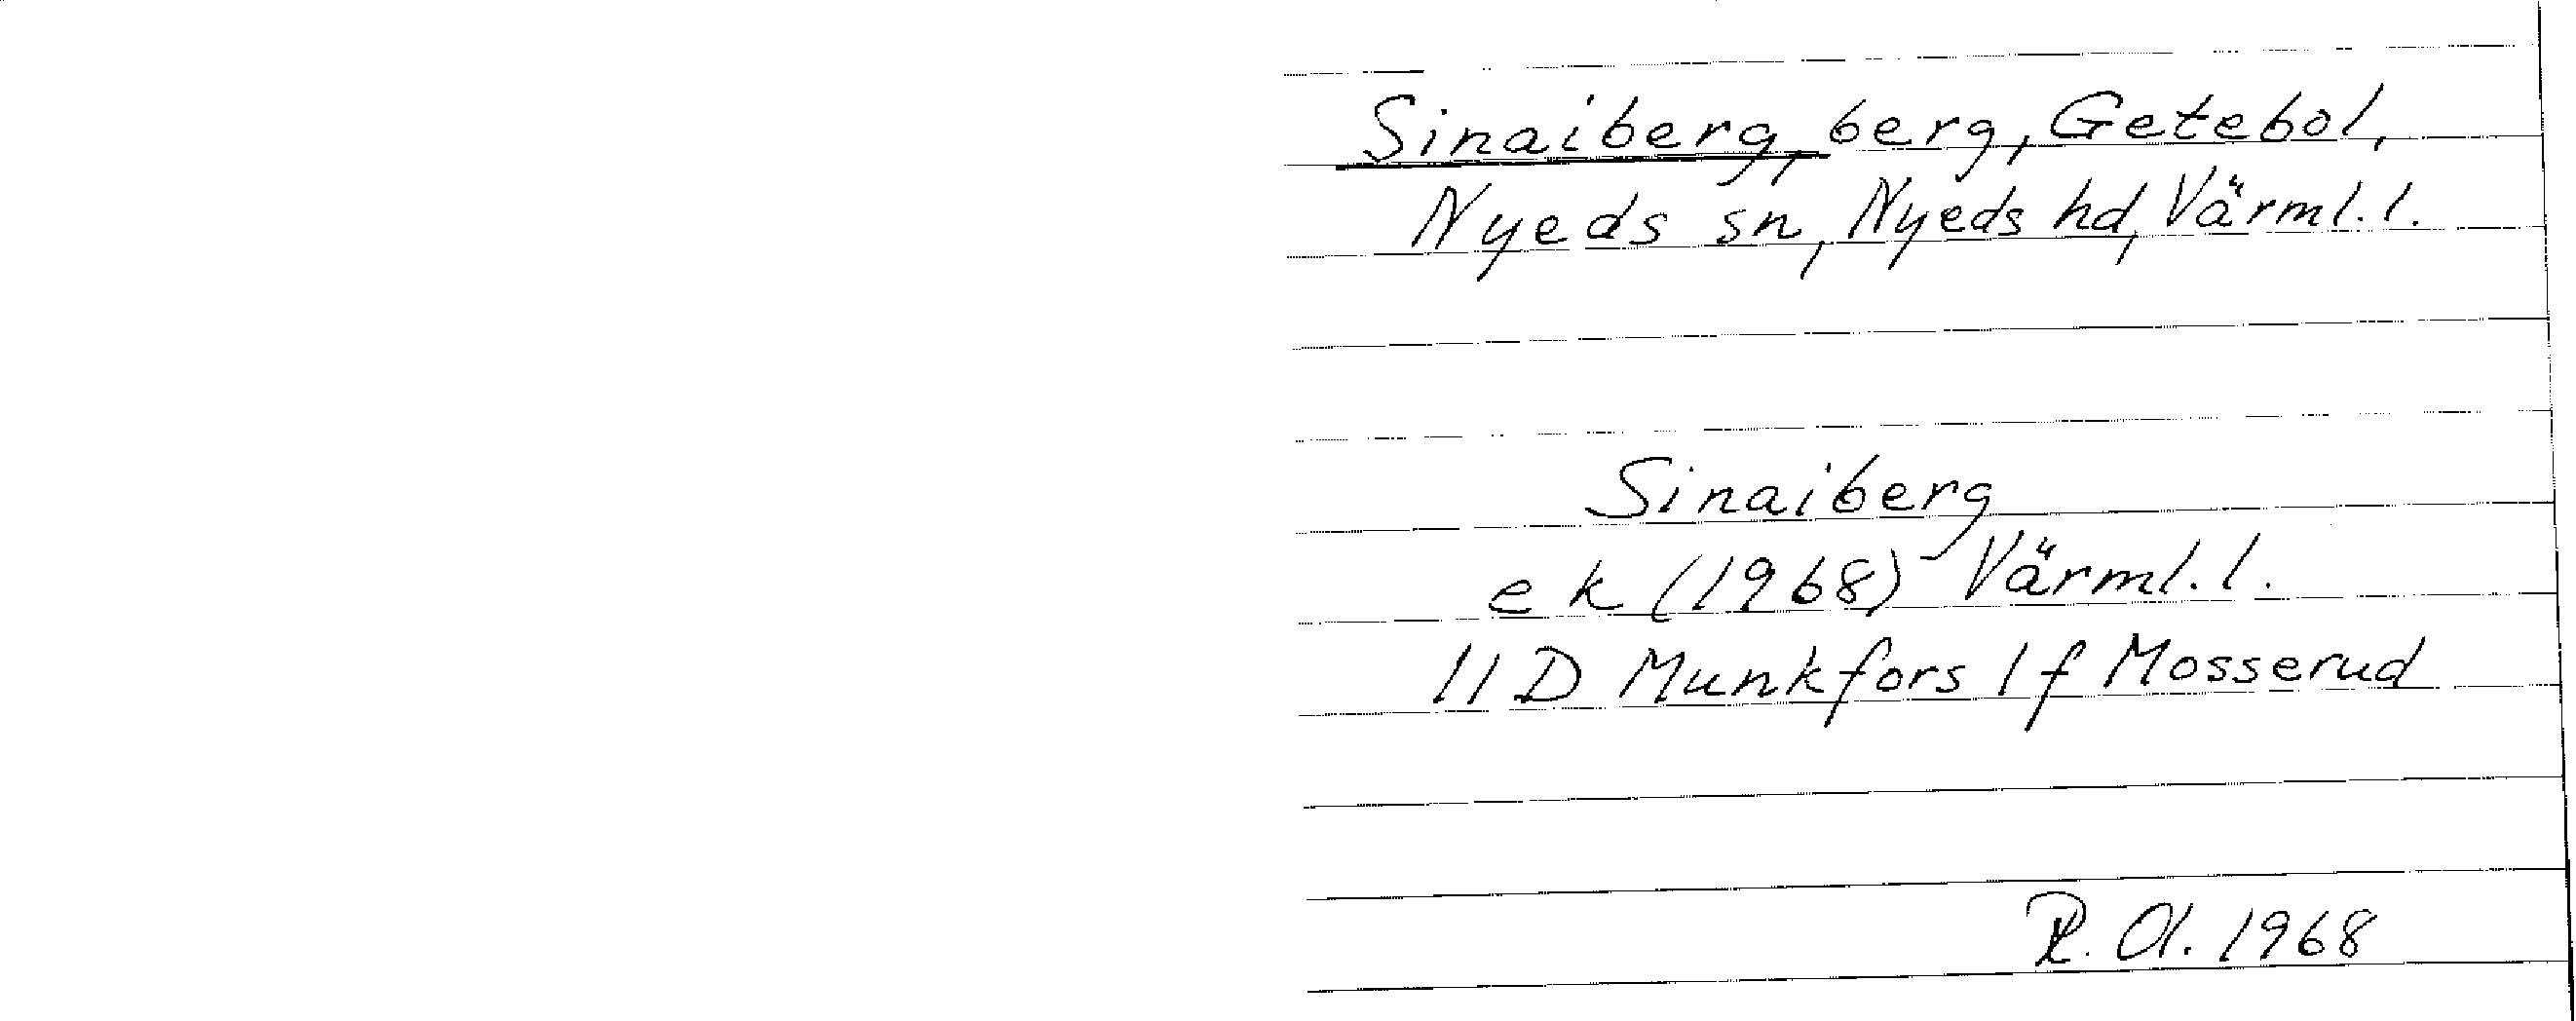 Sinaiberg, berg, Getebol,
Nyeds sn, Nyeds hd, Värml. l.
Sinaiberg
e k (1968) Värml. l.
11 D Munkfors 1 f Mosserud
R. Ol. 1968